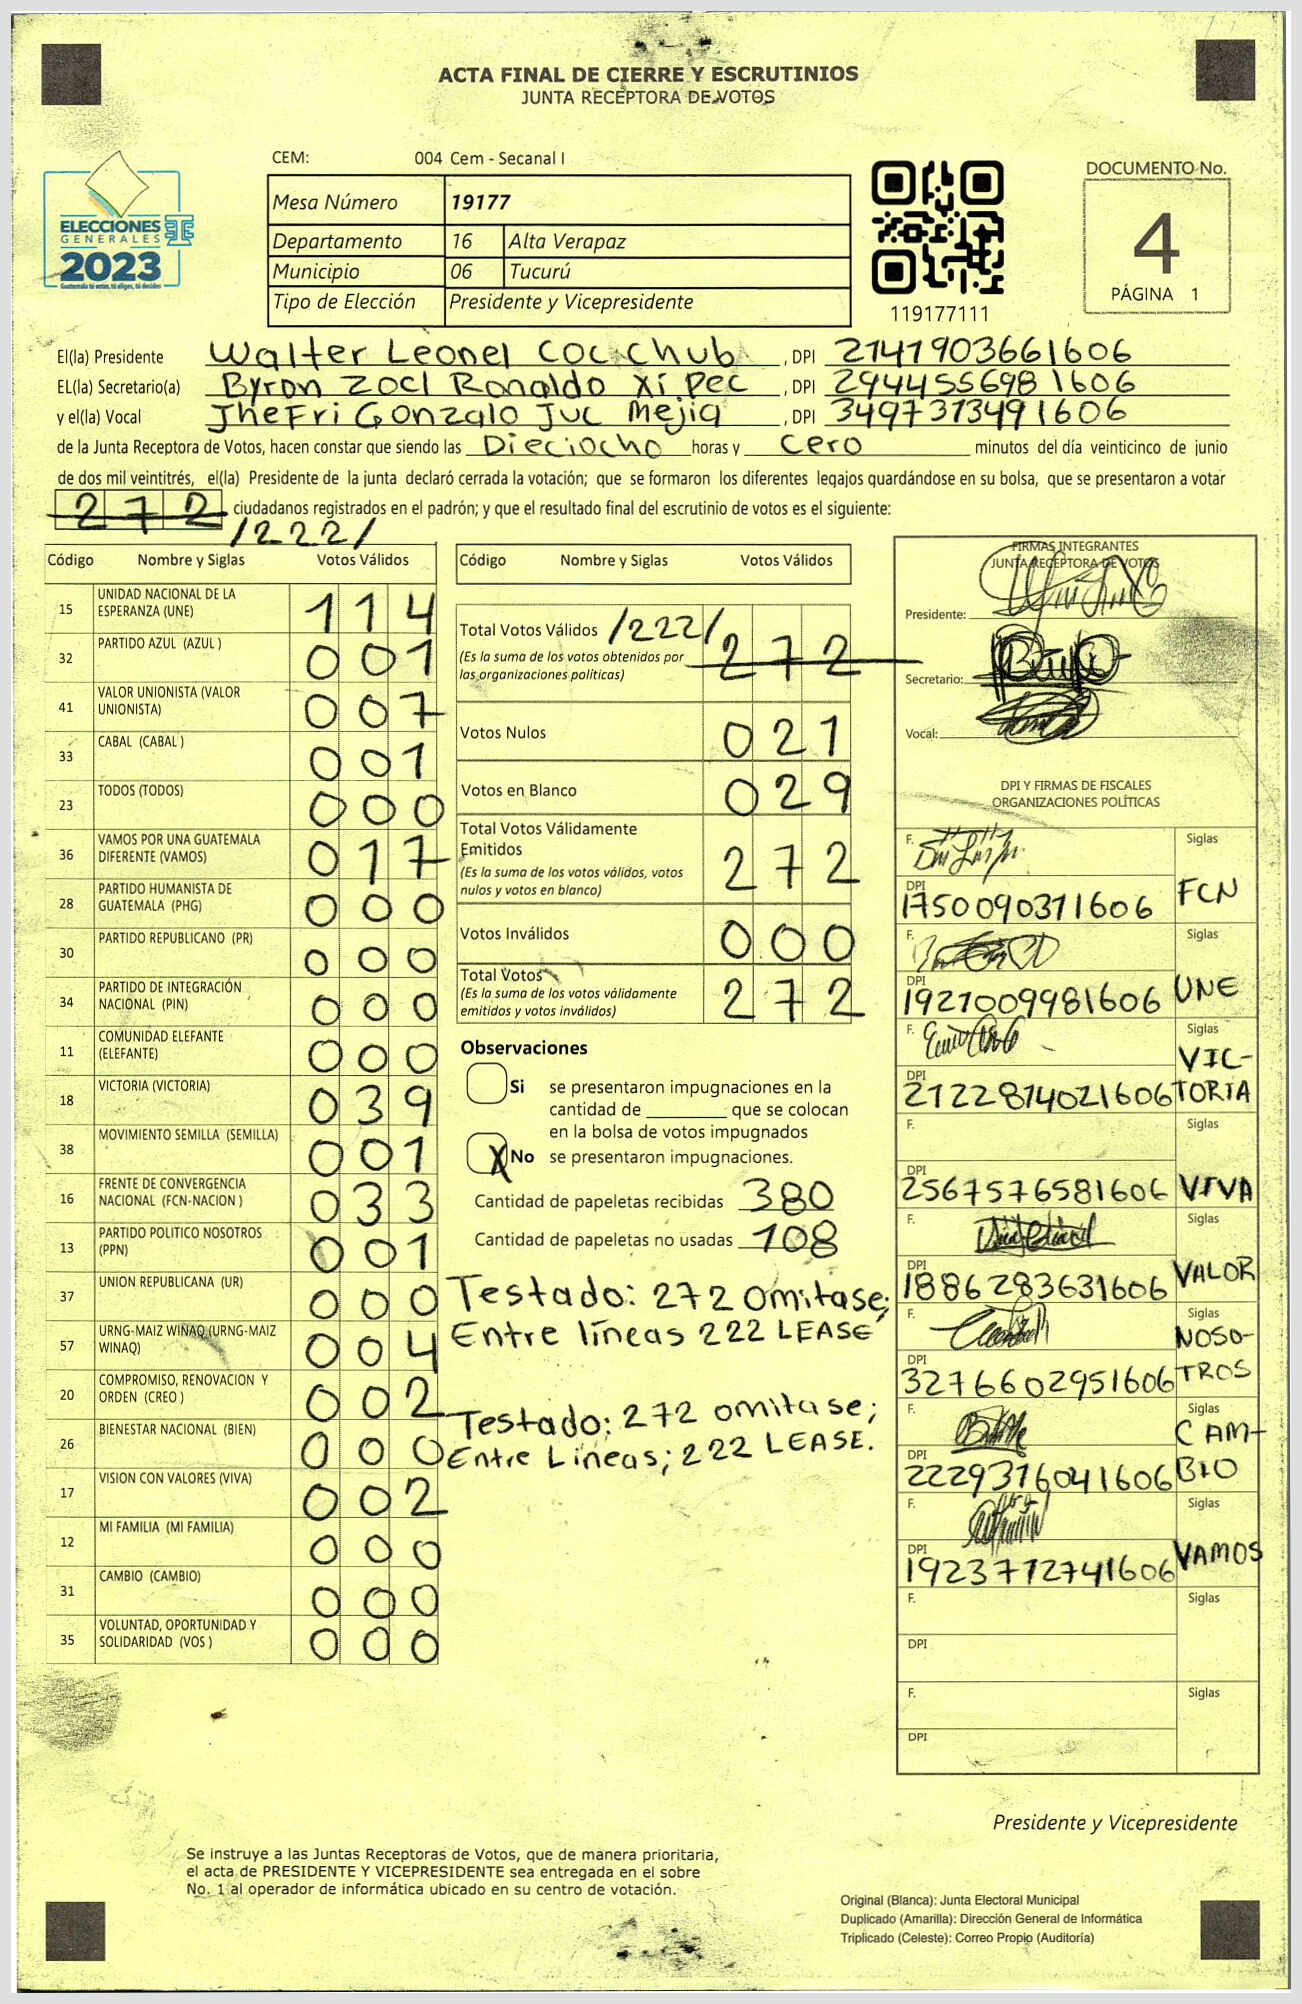 ACTA FINAL DE CIERRE Y ESCRUTINIOS
JUNTA RECEPTORA DE VOTOS
ELECCIONES
GENERALES
2023
Guatemala tú votas, tú eliges, tú decides
CEM: 004 Cem - Secanal I
Mesa Número 19177
Departamento 16 Alta Verapaz
Municipio 06 Tucurú
Tipo de Elección Presidente y Vicepresidente
119177111
DOCUMENTO No.
4
PÁGINA 1
El(la) Presidente Walter Leonel Coc Chub, DPI 2141903661606
EL(la) Secretario(a) Byron Zocl Ronaldo Xi Pec, DPI 2944556981606
y el(la) Vocal JheFri Gonzalo Juc Mejia, DPI 3497373491606
de la Junta Receptora de Votos, hacen constar que siendo las Dieciocho horas y Cero minutos del día veinticinco de junio
de dos mil veintitrés, el(la) Presidente de la junta declaró cerrada la votación; que se formaron los diferentes legajos guardándose en su bolsa, que se presentaron a votar
272 ciudadanos registrados en el padrón; y que el resultado final del escrutinio de votos es el siguiente:
/222/
Código Nombre y Siglas Votos Válidos
15 UNIDAD NACIONAL DE LA ESPERANZA (UNE) 114
32 PARTIDO AZUL (AZUL ) 001
41 VALOR UNIONISTA (VALOR UNIONISTA) 007
33 CABAL (CABAL ) 001
23 TODOS (TODOS) 000
36 VAMOS POR UNA GUATEMALA DIFERENTE (VAMOS) 017
28 PARTIDO HUMANISTA DE GUATEMALA (PHG) 000
30 PARTIDO REPUBLICANO (PR) 000
34 PARTIDO DE INTEGRACIÓN NACIONAL (PIN) 000
11 COMUNIDAD ELEFANTE (ELEFANTE) 000
18 VICTORIA (VICTORIA) 039
38 MOVIMIENTO SEMILLA (SEMILLA) 001
16 FRENTE DE CONVERGENCIA NACIONAL (FCN-NACION ) 033
13 PARTIDO POLITICO NOSOTROS (PPN) 001
37 UNION REPUBLICANA (UR) 000
57 URNG-MAIZ WINAQ (URNG-MAIZ WINAQ) 004
20 COMPROMISO, RENOVACION Y ORDEN (CREO ) 002
26 BIENESTAR NACIONAL (BIEN) 000
17 VISION CON VALORES (VIVA) 002
12 MI FAMILIA (MI FAMILIA) 000
31 CAMBIO (CAMBIO) 000
35 VOLUNTAD, OPORTUNIDAD Y SOLIDARIDAD (VOS ) 000
Código Nombre y Siglas Votos Válidos
Total Votos Válidos /222/ 272
(Es la suma de los votos obtenidos por
las organizaciones políticas)
Votos Nulos 021
Votos en Blanco 029
Total Votos Válidamente
Emitidos 272
(Es la suma de los votos válidos, votos
nulos y votos en blanco)
Votos Inválidos 000
Total Votos 272
(Es la suma de los votos válidamente
emitidos y votos inválidos)
Observaciones
Si se presentaron impugnaciones en la
cantidad de ________ que se colocan
en la bolsa de votos impugnados
X No se presentaron impugnaciones.
Cantidad de papeletas recibidas 380
Cantidad de papeletas no usadas 108
Testado: 272 omitase;
Entre líneas 222 LEASE
Testado: 272 omitase;
Entre Lineas; 222 LEASE.
FIRMAS INTEGRANTES
JUNTA RECEPTORA DE VOTOS
Presidente:
Secretario:
Vocal:
DPI Y FIRMAS DE FISCALES
ORGANIZACIONES POLÍTICAS
F. Siglas
DPI 1750090371606 FCN
F. Siglas
DPI 1921009981606 UNE
F. Siglas
DPI 2122814021606 VIC-TORIA
F. Siglas
DPI 2567576581606 VIVA
F. Siglas
DPI 1886283631606 VALOR
F. Siglas
DPI 3276602951606 NOSO-TROS
F. Siglas
DPI 2229376041606 CAM-BIO
F. Siglas
DPI 1923772741606 VAMOS
F. Siglas
DPI
F. Siglas
DPI
Presidente y Vicepresidente
Se instruye a las Juntas Receptoras de Votos, que de manera prioritaria,
el acta de PRESIDENTE Y VICEPRESIDENTE sea entregada en el sobre
No. 1 al operador de informática ubicado en su centro de votación.
Original (Blanca): Junta Electoral Municipal
Duplicado (Amarilla): Dirección General de Informática
Triplicado (Celeste): Correo Propio (Auditoría)